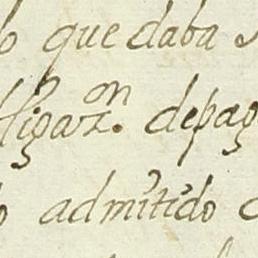 o que daba
ligaz.on depag
o admitido